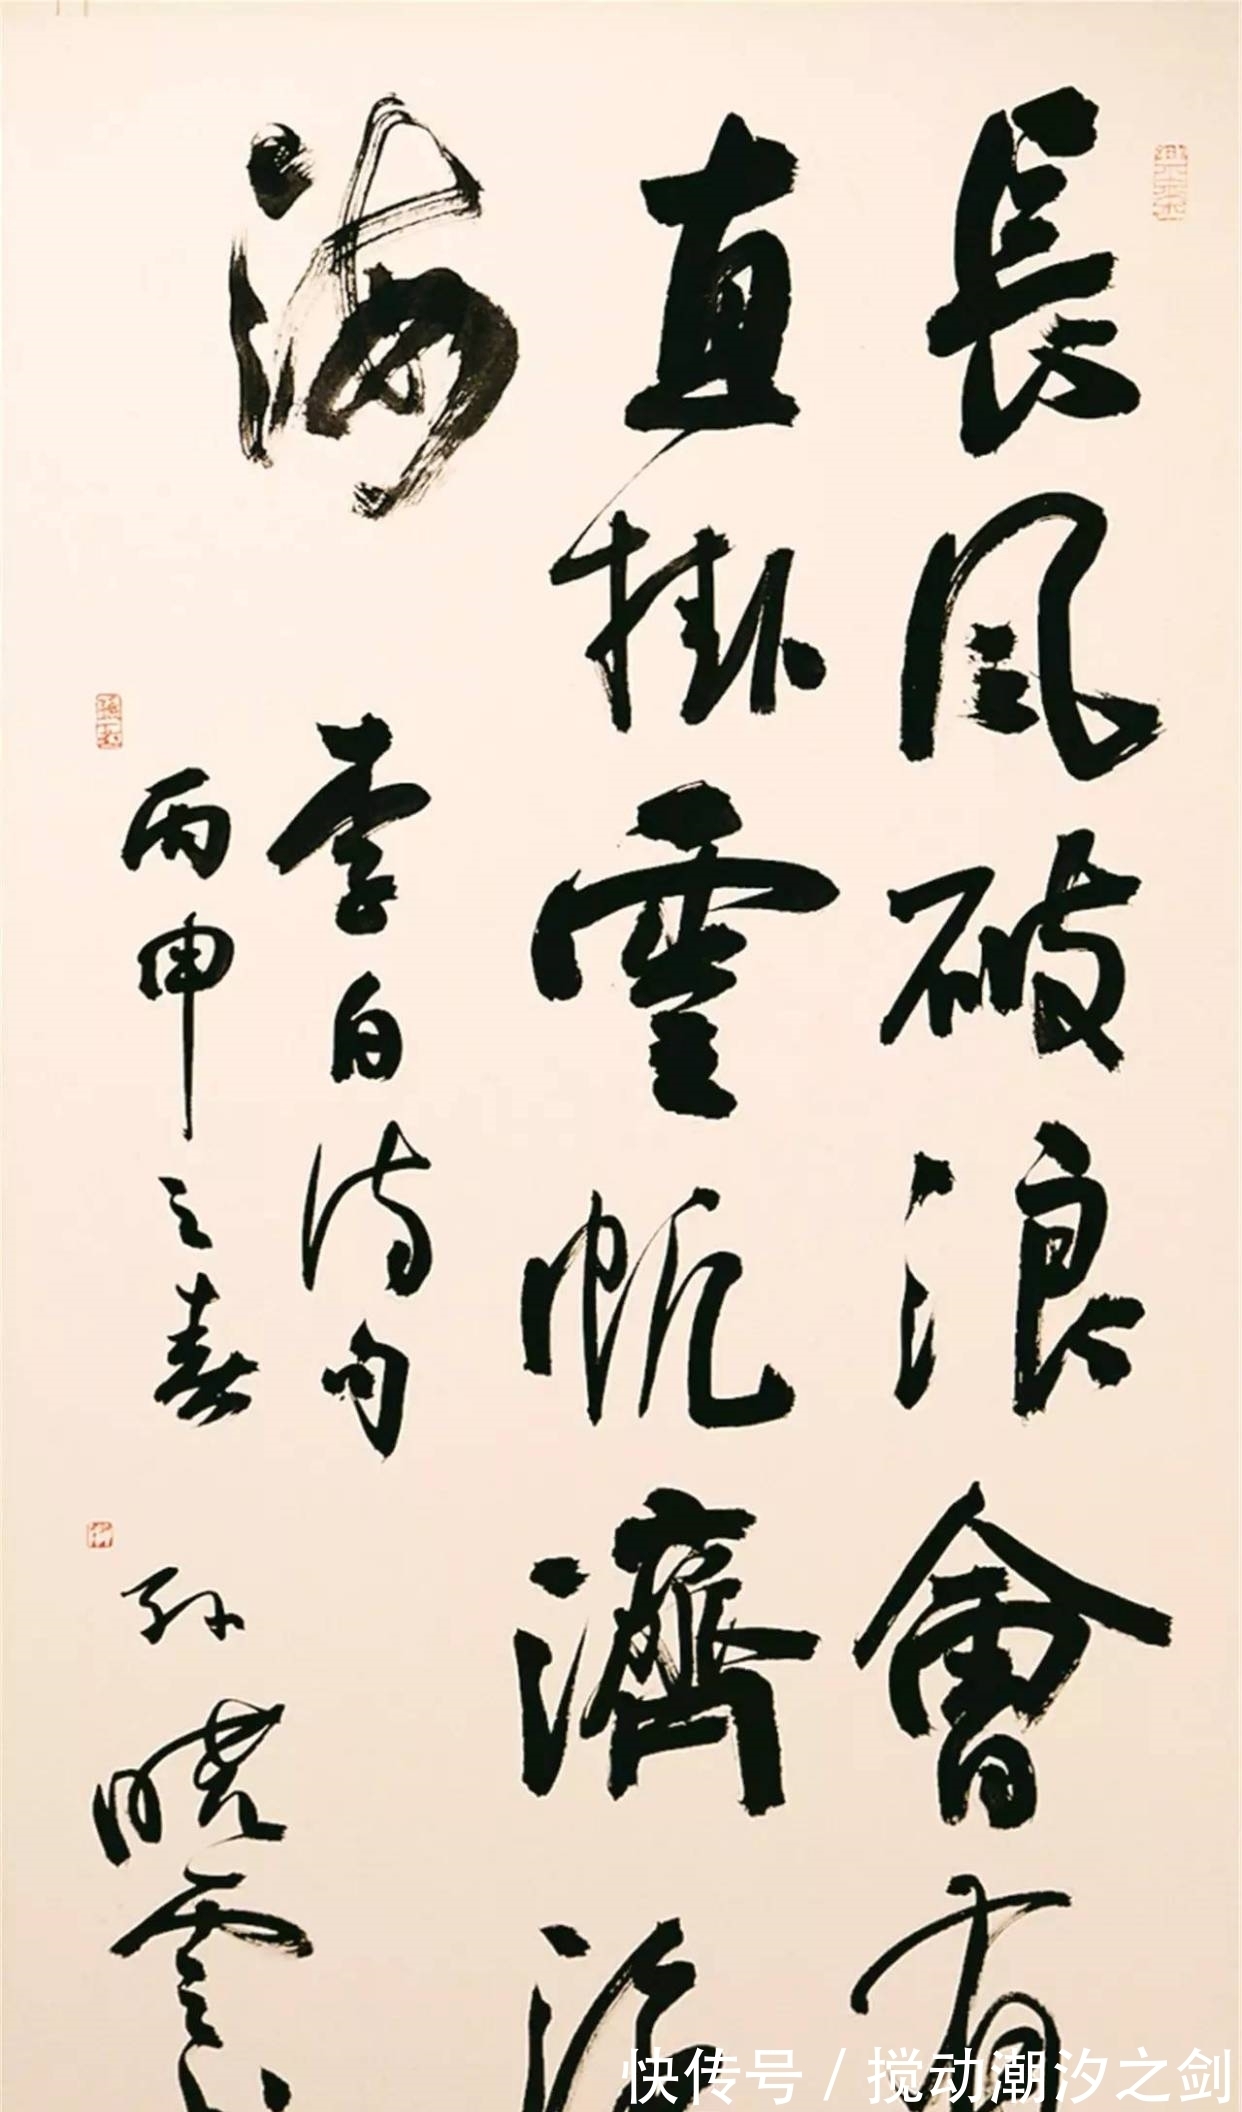 長風破浪會有
直掛雲帆濟滄
海
李白詩句
丙申之春
孙曉雲
快传号 / 搅动潮汐之剑